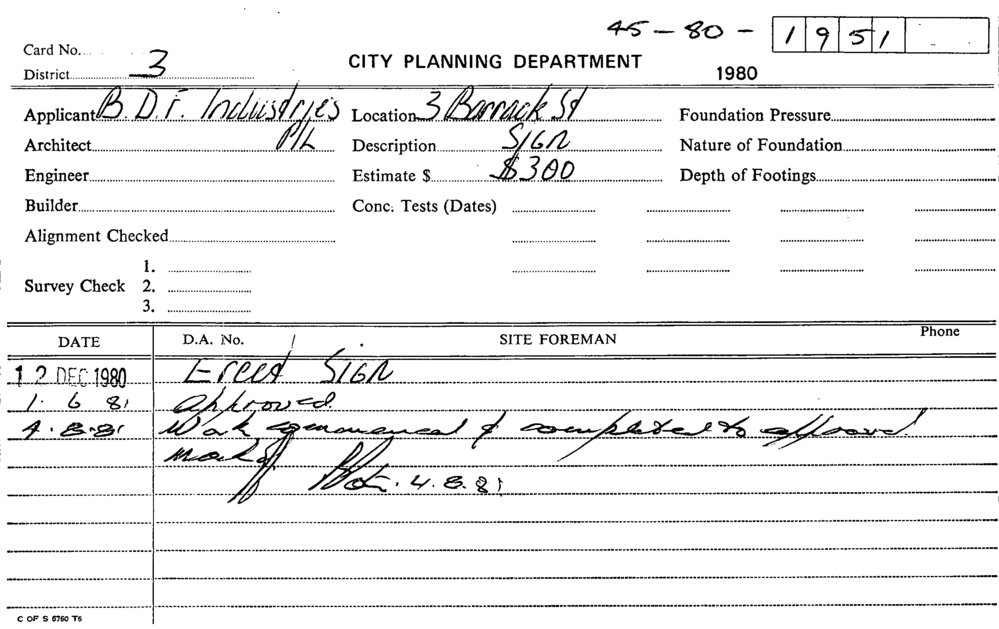 45 - 80 - 1951
Card No.
District 3
CITY PLANNING DEPARTMENT
1980
Applicant B.D.F. Industries P/L
Location 3 Barrack St
Foundation Pressure
Architect
Description SIGN
Nature of Foundation
Engineer
Estimate $ $300
Depth of Footings
Builder
Conc. Tests (Dates)
Alignment Checked
Survey Check 1.
2.
3.
DATE D.A. No. SITE FOREMAN Phone
12 DEC 1980 Erect SIGN
1. 6 81 Approved.
4.8.81 Work commenced & completed to approved.
4.8.81
C OF S 5760 T5